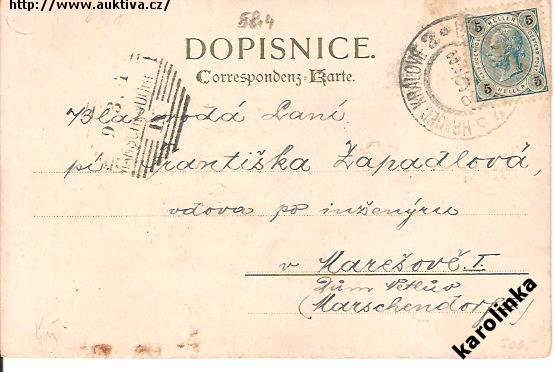 http://www.auktiva.cz/
58.4
DOPISNICE.
Correspondenz-Karte.
5 HELLER 5
HRADEC KRÁLOVÉ
Blahorodá Paní
pí Františka Zapadlová,
vdova po inženýru
v Marešově I.
Dům Petrův
(Marschendorf)
karolinka